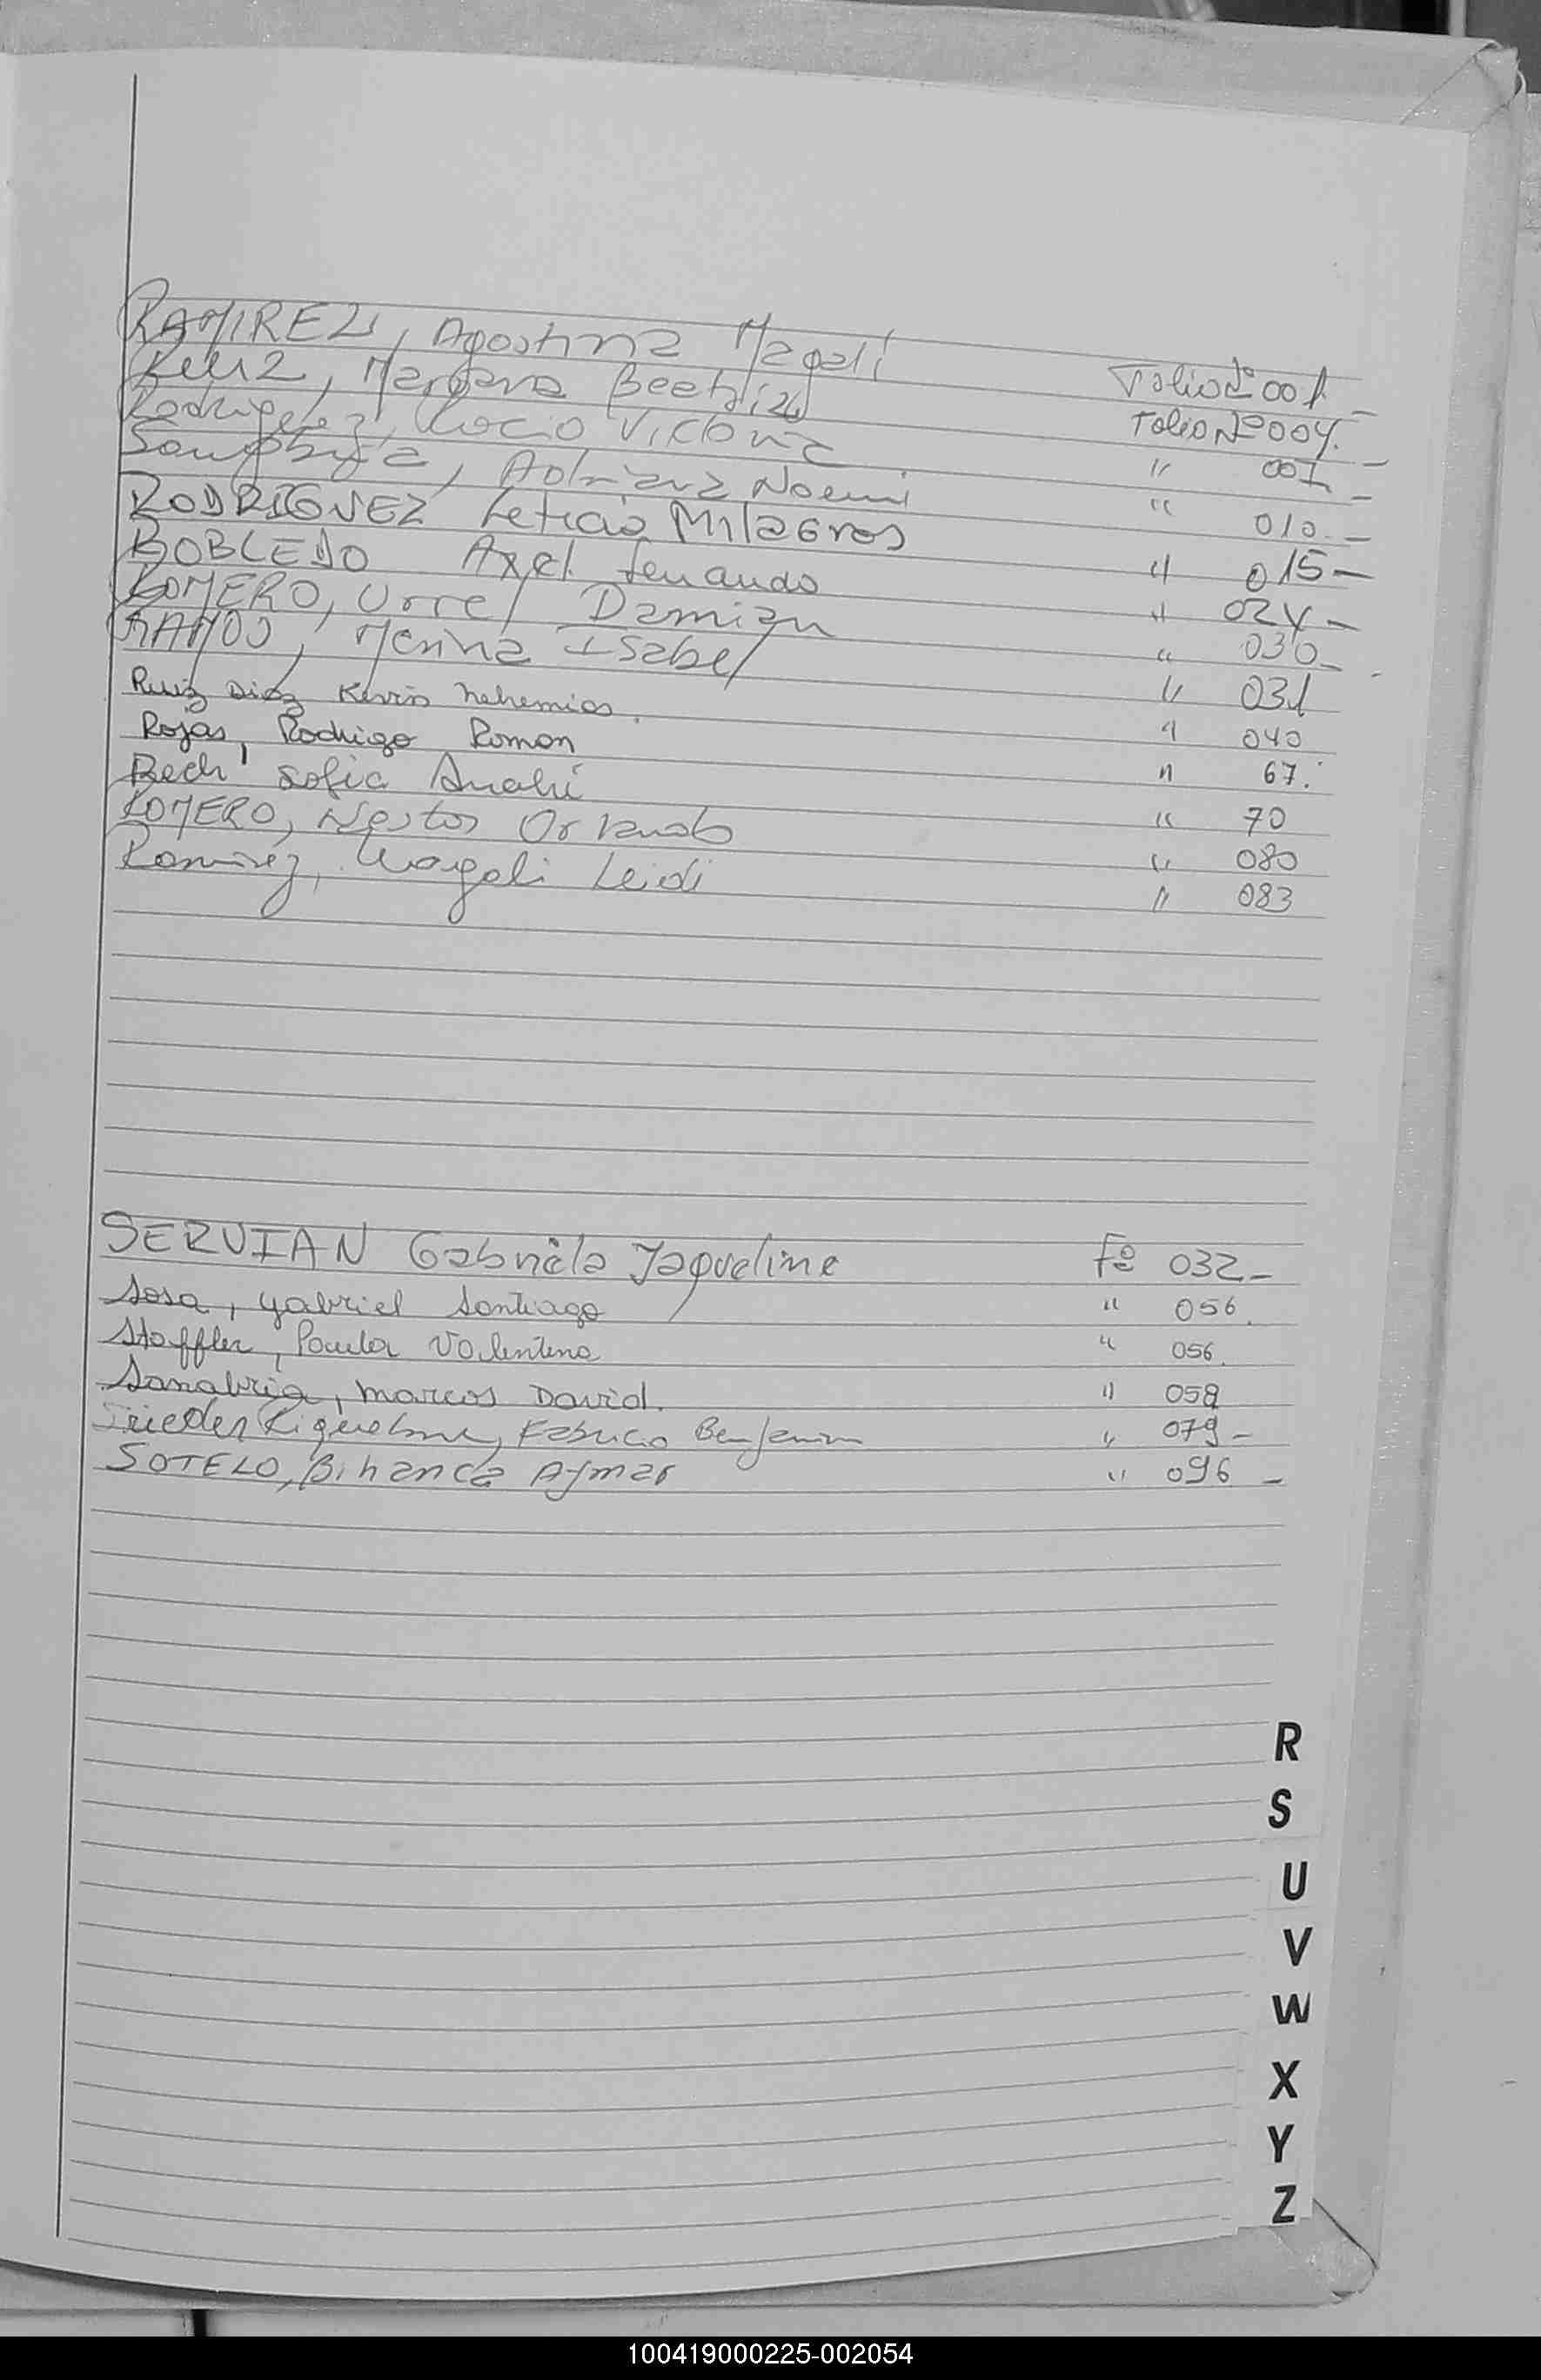 RAMIREZ, Agostina Magalí Folio Nº 001 -
Ruiz, Mariana Beatriz Folio Nº 004. -
Rodriguez, Rocio Victoria " 007 -
Sanabria, Adriana Noemi " 010. -
RODRIGUEZ Leticia Milagros " 015 -
ROBLEDO Axel Fernando " 024 -
ROMERO, Uriel Damian " 030 -
RAMOS, Marina Isabel " 031
Ruiz Diaz Kevin Nehemias. " 040
Rojas, Rodrigo Roman " 67.
Sofia Anahí " 70
ROMERO, Nestor Orlando " 080
Ramirez, Magali Leidi " 083
SERVIAN Gabriela Jaqueline Fº 032 -
Sosa, Gabriel Santiago " 056.
Stoffler, Paula Valentina " 056.
Sanabria, Marcos David. " 058
Riquelme, Fabricio Benjamin " 079 -
SOTELO, Bihanca Aymar " 096 -
R
S
U
V
W
X
Y
Z
100419000225-002054